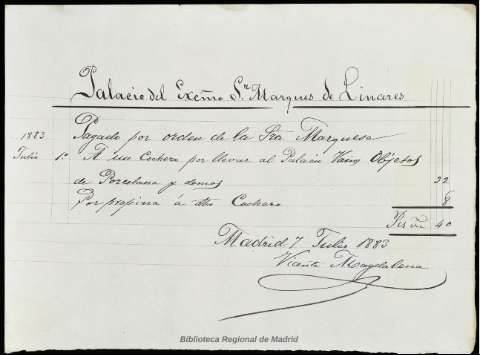 Palacio del Excmo Sr Marques de Linares
Pagado por orden de la Sra Marquesa
1883
Julio 1º A un Cochero por llevar al Palacio Varios Objetos
de Porcelana y demos 32
Por propina á dho Cochero 8
40
Madrid 7 Julio 1883
Vicente Magdalena
Biblioteca Regional de Madrid